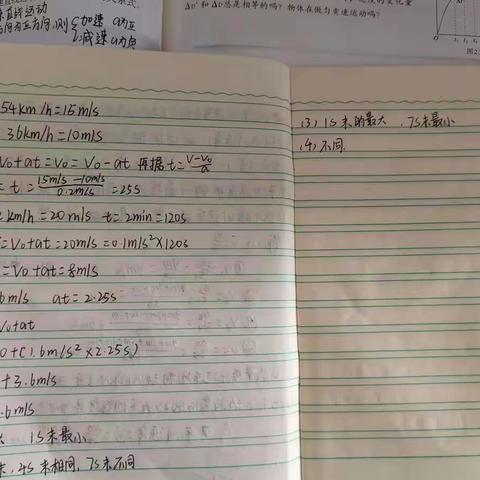 来直线运动
方向为正方向,则 加速 a为正
减速 a为负
Δv'和Δv总是相等的吗?物体在做匀变速运动吗?
图2.
54km/h=15m/s
36km/h=10m/s
V₀+at=V₀=V₀-at 再据t=V-V₀/a
t=15m/s-10m/s/0.2m/s=25s
km/h=20m/s t=2min=120s
=V₀+at=20m/s=0.1m/s²×120s
=V₀+at=8m/s
6m/s at=2.25s
V₀+at
0+(1.6m/s²×2.25s)
+3.6m/s
.6m/s
1s末最小
末,4s末相同,7s末不同
(3) 1s末的最大,7s末最小
(4) 不同.